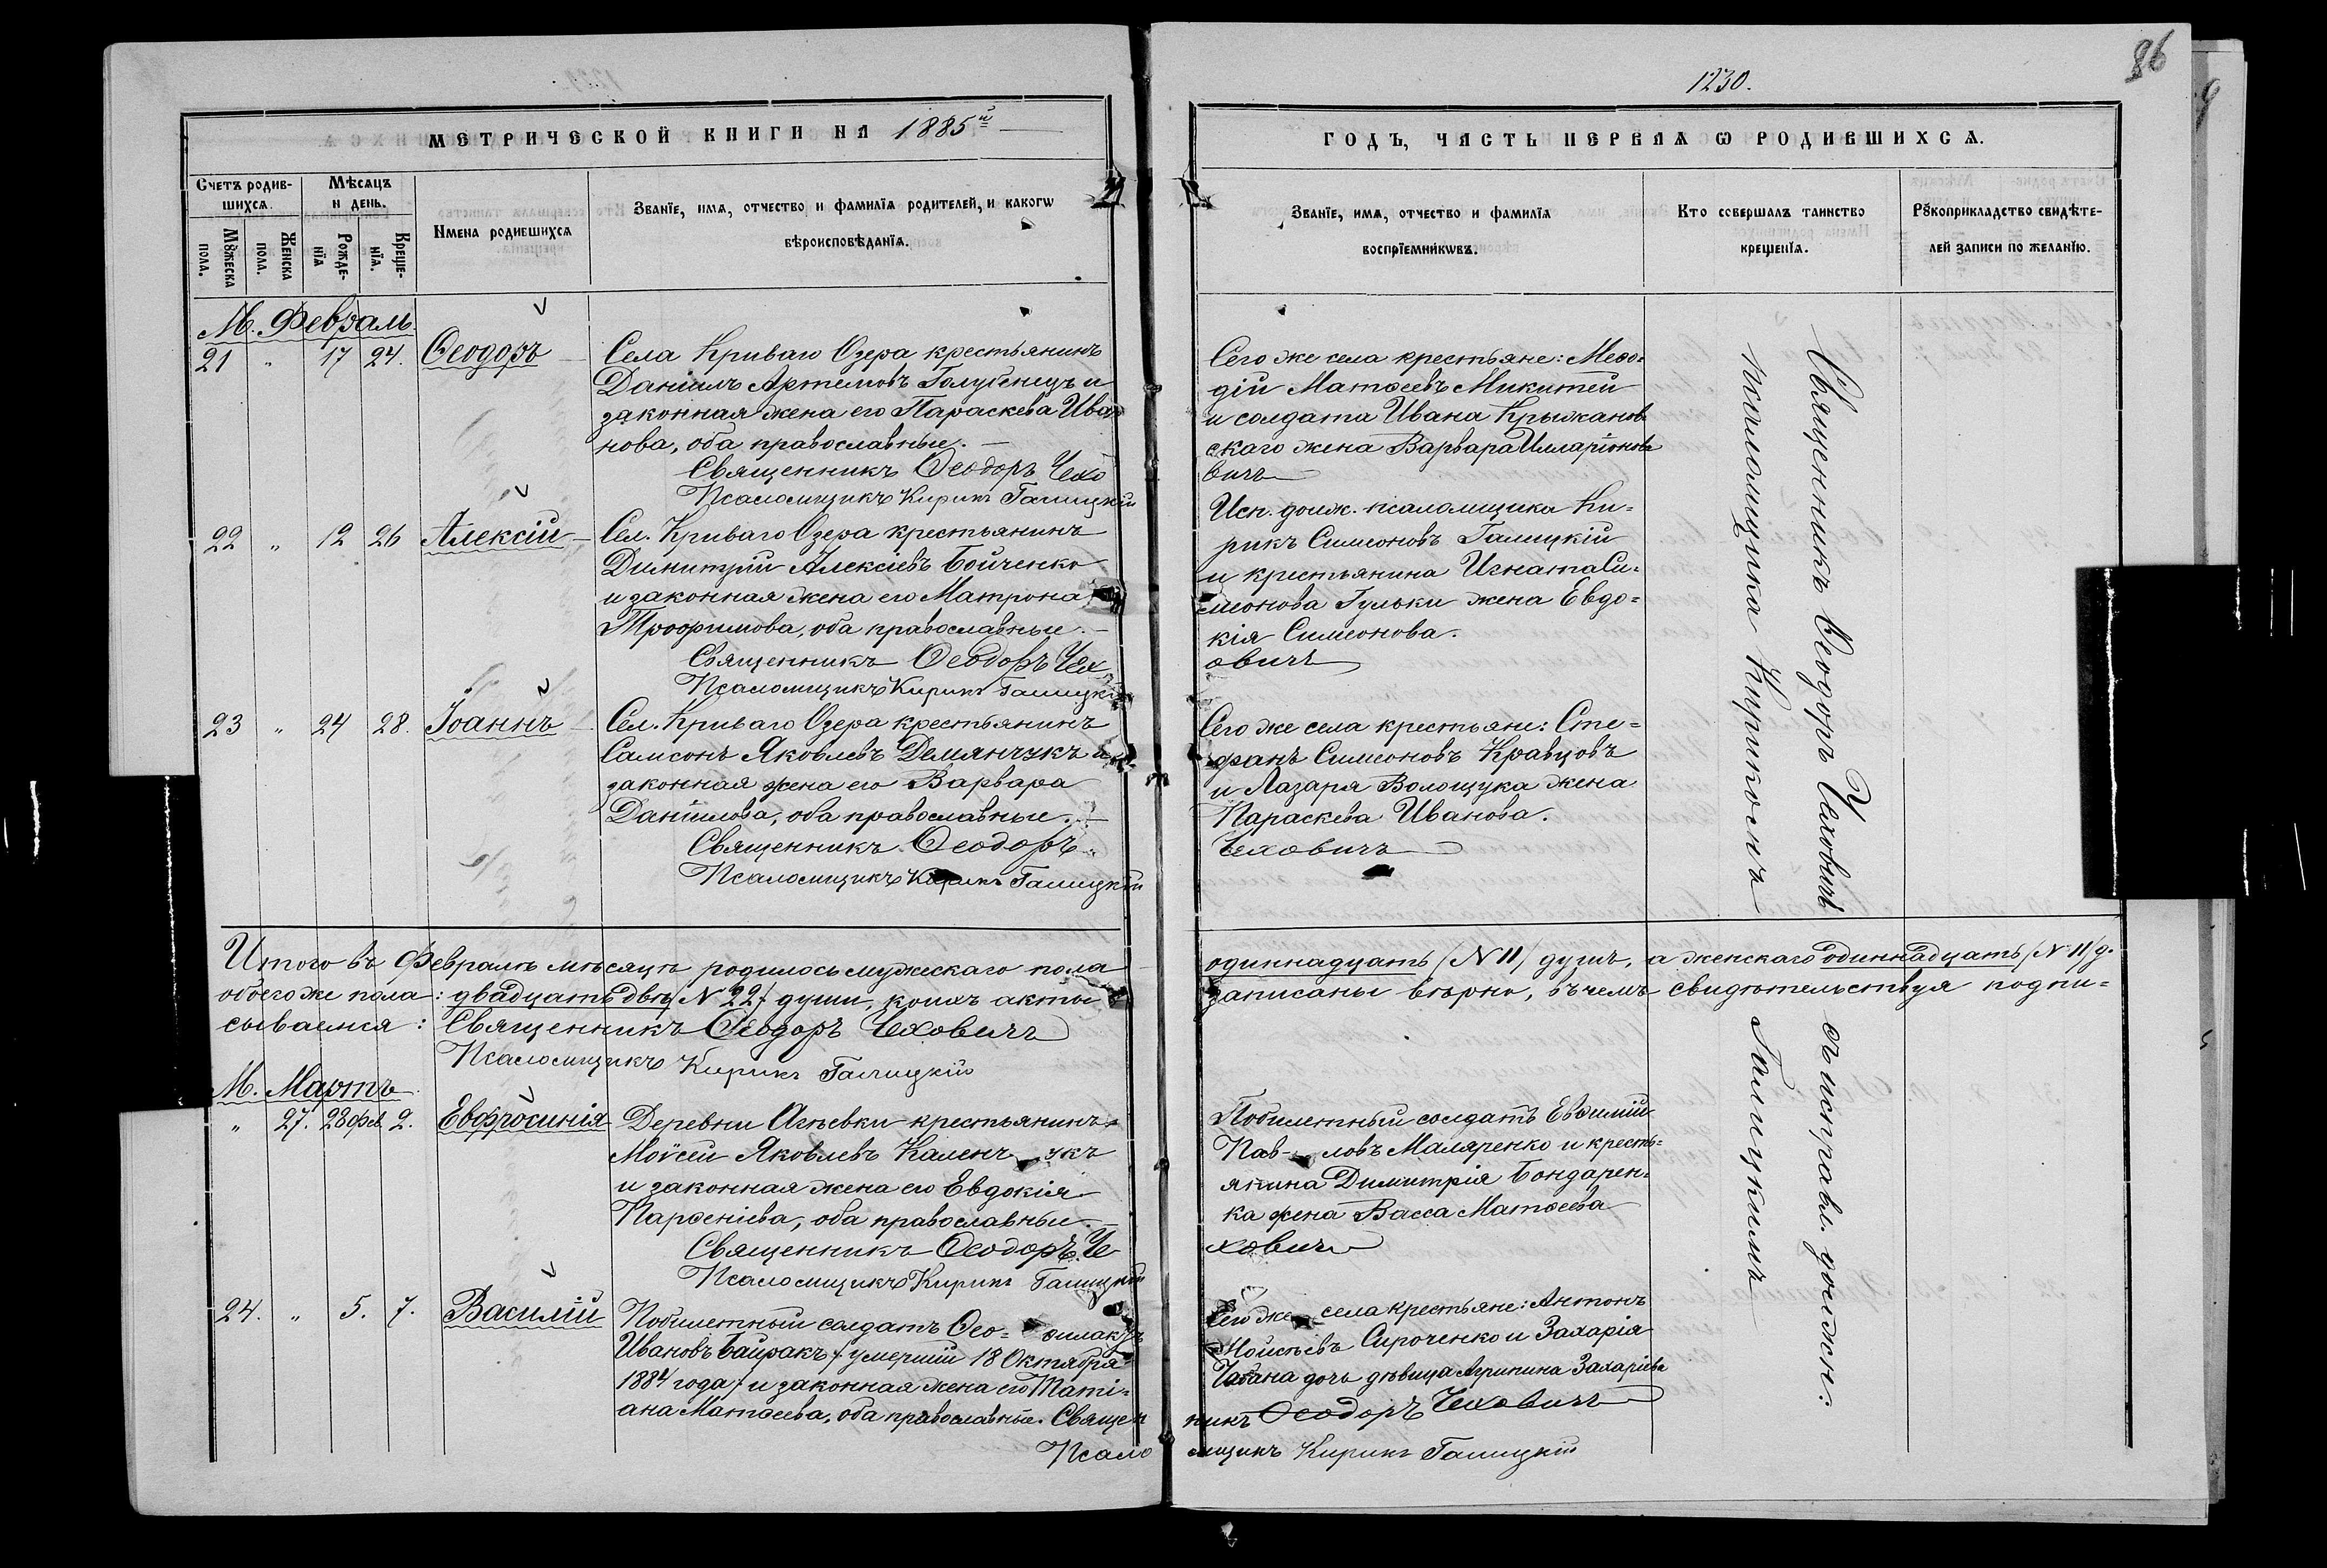 86
1230.
МЕТРИЧЕСКОЙ КНИГИ НА 1885й
ГОДЪ, ЧАСТЬ ПЕРВАЯ Ѡ РОДИВШИХСѦ.
Счетъ родив-
шихсѧ.
Мѣсѧцъ
и день.
Мꙋжеска
пола.
Женска
пола.
Рожде-
нїѧ
Креще-
нїѧ.
Имена родившихсѧ
Званїе, имѧ, отчество и фамилїѧ родителей, и какогѡ
вѣроисповѣданїѧ.
Званїе, имѧ, отчество и фамилїѧ
воспрїемникѡвъ.
Кто совершалъ таинство
крещенїѧ.
Рꙋкоприкладство свидѣте-
лей записи по желанїю.
М. Февраль
21 " 17 24. Ѳеодоръ
Села Криваго Озера крестьянинъ
Даніилъ Артемовъ Голубенецъ и
законная жена его Параскева Ива-
нова, оба православные.
Священникъ Ѳеодоръ Чехо
Псаломщикъ Кирикъ Галицкій
Сего же села крестьяне: Меѳо-
дій Матѳеевъ Микитей
и солдата Ивана Крыжанов-
скаго жена Варвара Илларіонова
вичъ
22 " 12 26 Алексій
Сел. Криваго Озера крестьянинъ
Димитрій Алексіевъ Бойченко
и законная жена его Матрона
Трофимова, оба православные.
Священникъ Ѳеодоръ Чех
Псаломщикъ Кирикъ Галицкій
Исп. долж. псаломщика Ки-
рикъ Симеоновъ Галицкій
и крестьянина Игната Си-
меонова Гульки жена Евдо-
кія Симеонова.
овичъ
23 " 24 28. Іоаннъ
Сел. Криваго Озера крестьянинъ
Самсонъ Яковлевъ Демянчукъ и
законная жена его Варвара
Даніилова, оба православные.
Священникъ Ѳеодоръ
Псаломщикъ Кирикъ Галицкій
Сего же села крестьяне: Сте-
фанъ Симеоновъ Кравцовъ
и Лазаря Волощука жена
Параскева Иванова.
Чеховичъ
Священникъ Ѳеодоръ Чеховичъ
псаломщика Кирикомъ
Итого въ Февралѣ мѣсяцѣ родилось мужескаго пола
одиннадцать /N 11/ душъ, а женскаго одиннадцать /N 11/ д.
обоего же пола: двадцать двѣ /N 22/ души, коихъ акты
записаны вѣрно, въ чемъ свидѣтельствуя подпи-
сываемся: Священникъ Ѳеодоръ Чеховичъ
Псаломщикъ Кирикъ Галицкій
М. Мартъ
" 27. 28 фев. 2. Евфросинія
Деревни Агѣевки крестьянинъ
Моисей Яковлевъ Каленчукъ
и законная жена его Евдокія
Парѳеніева, оба православные.
Священникъ Ѳеодоръ Че
Псаломщикъ Кирикъ Галицкій
Побилетный солдатъ Евѳимій
Пав- ловъ Маляренко и кресть-
янина Димитрія Бондарен-
ка жена Васса Матѳеева
ховичъ
24. " 5. 7. Василій
Побилетный солдатъ Ѳео- филактъ
Ивановъ Байракъ /умершій 18 Октября
1884 года/ и законная жена его Таті-
ана Матѳеева, оба православные. Священ
Псало
Сего же села крестьяне: Антонъ
Моисѣевъ Сироченко и Захарія
Чабана дочь дѣвица Агрипина Захаріева
никъ Ѳеодоръ Чеховичъ
мщикъ Кирикъ Галицкій
съ исправл. должн.:
Галицкимъ